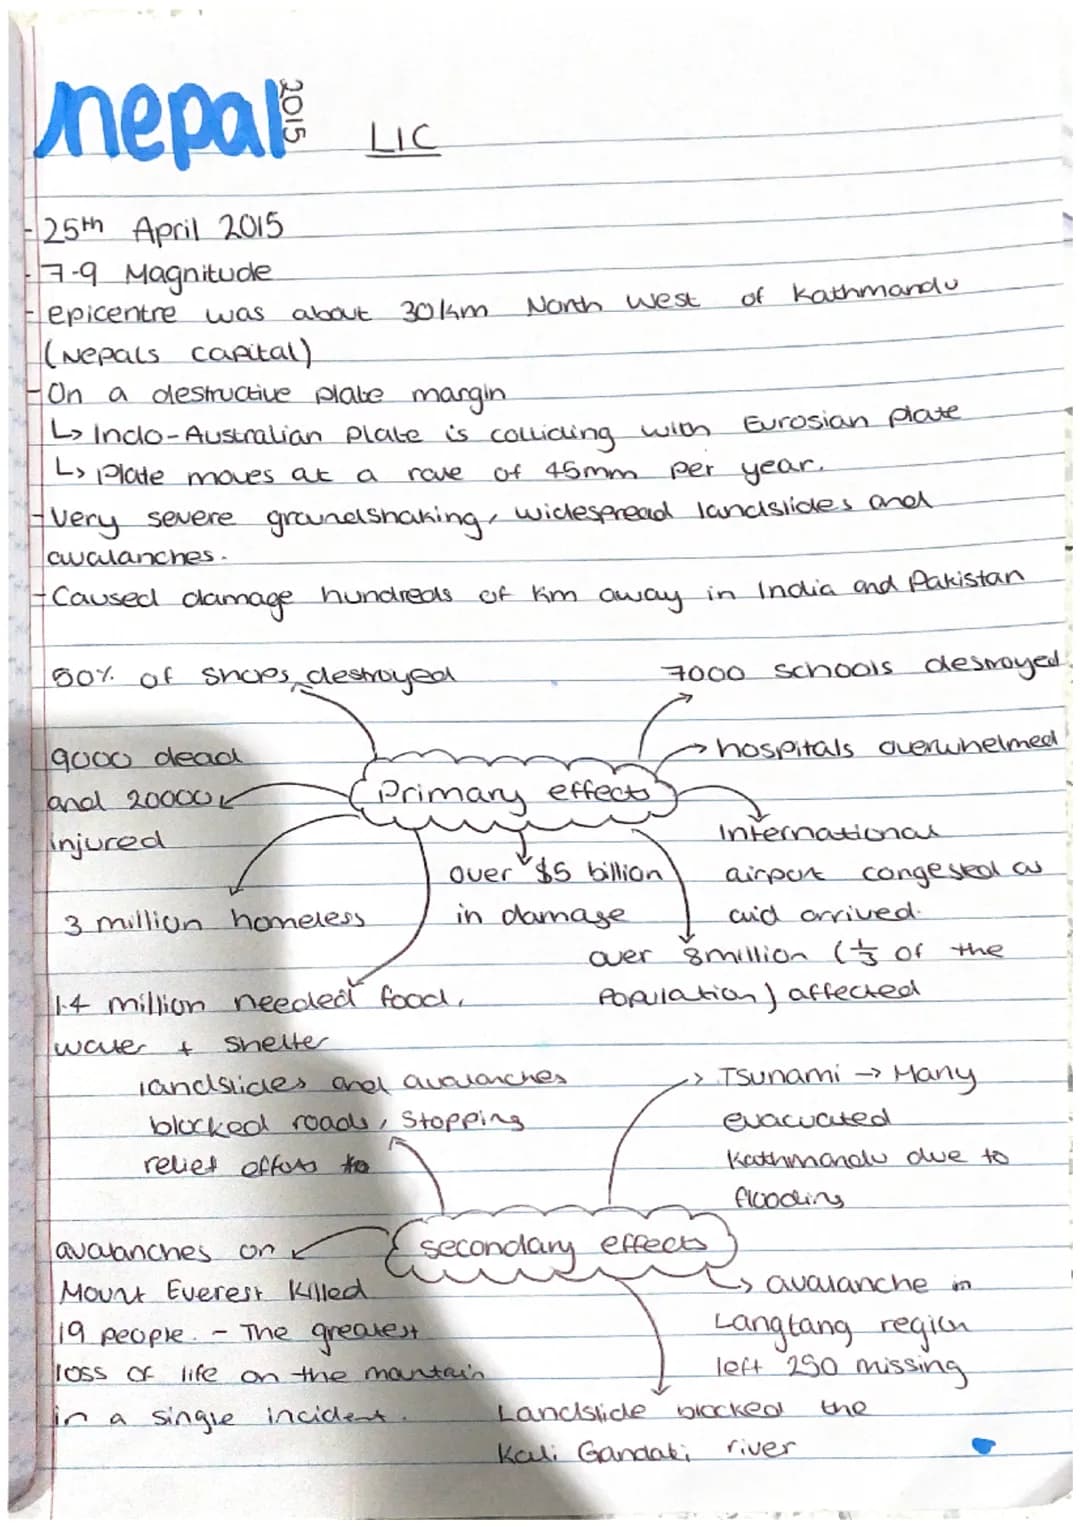 nepal 2015 LIC
- 25th April 2015
- 7.9 Magnitude
- epicentre was about 30km North West of Kathmandu
(Nepals capital)
- On a destructive plate margin
↳ Indo-Australian plate is colliding with Eurosian plate
↳ Plate moves at a rate of 45mm per year.
- Very severe groundshaking, widespread landslides and
avalanches.
- Caused damage hundreds of km away in India and Pakistan
50% of shops destroyed
7000 schools destroyed
hospitals overwhelmed
9000 dead
and 20000
injured
Primary effects
International
airport congested as
aid arrived.
over $5 billion
in damage
3 million homeless
over 8million (1/3 of the
Population) affected
1.4 million needed food,
water + shelter
landslides and avalanches
blocked roads, stopping
relief efforts to
Tsunami → Many
evacuated
Kathmandu due to
flooding
secondary effects
avalanches on
Mount Everest Killed
19 people. - The greatest
loss of life on the mountain
in a single incident.
avalanche in
Langtang region
left 250 missing
Landslide blocked the
Kali Gandaki river